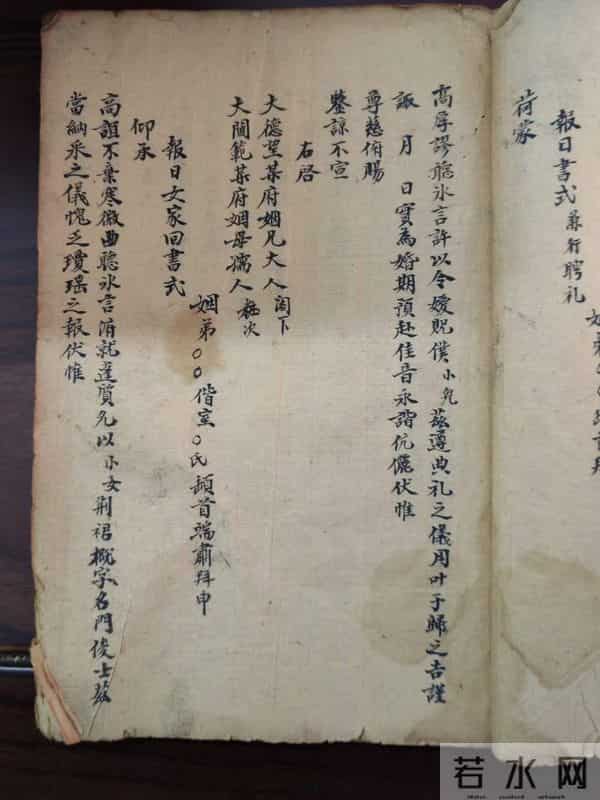 報日書式 兼行聘礼
荷蒙
高厚謬聽氷言許以令嫒貺僕小兒茲遵典礼之儀用叶于歸之吉謹
諏 月 日寔為婚期預赴佳音永諧伉儷伏惟
尊慈俯賜
鑒諒不宣
右启
大德望某府姻兄大人閣下
大閫範某府姻母孺人粧次
姻弟〇〇偕室〇氏頓首端肅拜申
報日女家回書式
仰承
高誼不棄寒微曲聽氷言
之儀愧乏瓊瑤之報伏惟
若水网